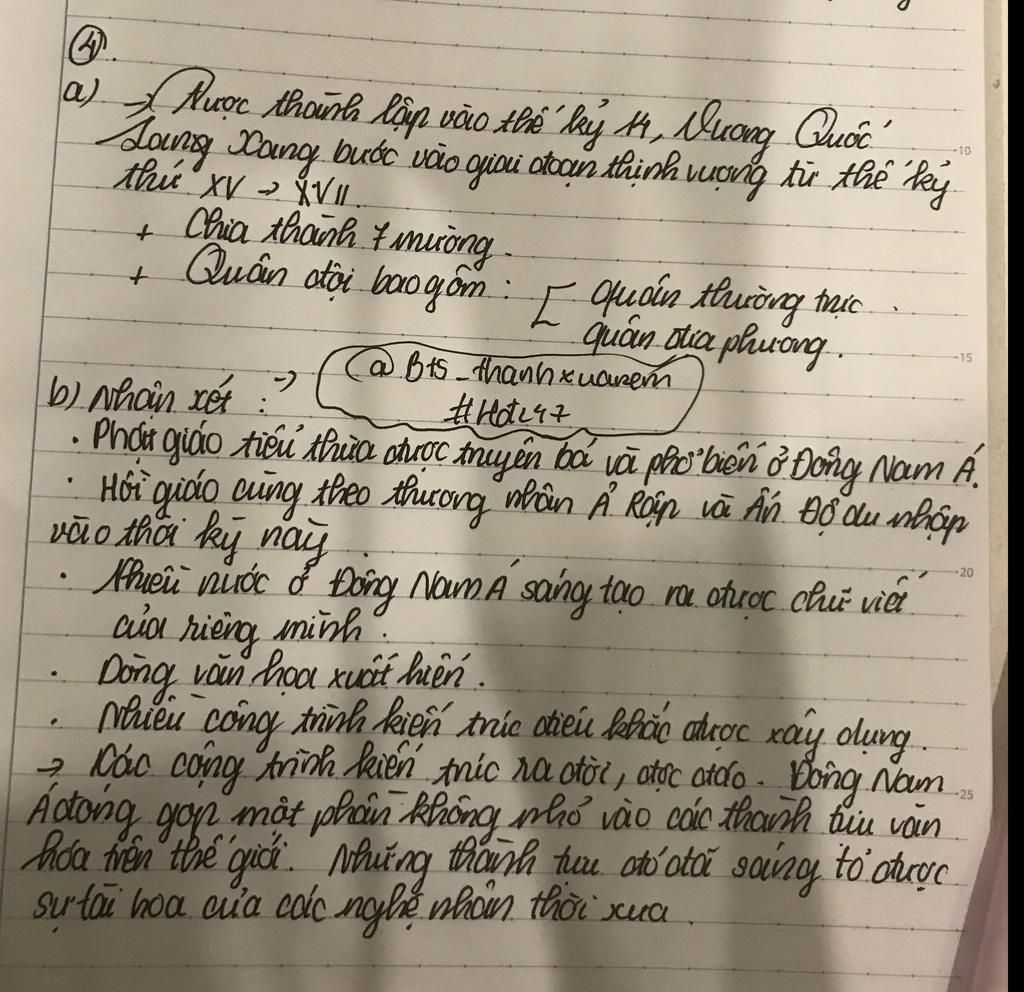 ④.
a) → Được thành lập vào thế kỷ 14, Vương Quốc
Lang Xang bước vào giai đoạn thịnh vượng từ thế kỷ
thứ XV → XVII.
+ Chia thành 7 mường.
+ Quân đội bao gồm : [ quân thường trực .
quân địa phương.
b) Nhận xét : → @Bts_thanhxuanem
.10
.15
· Phật giáo tiểu thừa được truyền bá và phổ biến ở Đông Nam Á.
· Hồi giáo cũng theo thương nhân Ả Rập và Ấn Độ du nhập
vào thời kỳ này .
· Nhiều nước ở Đông Nam Á sáng tạo ra được chữ viết
.20
của riêng mình .
· Dòng văn học xuất hiện .
· Nhiều công trình kiến trúc điêu khắc được xây dựng .
→ Các công trình kiến trúc ra đời, độc đáo. Đông Nam
.25
Á đóng góp một phần không nhỏ vào các thành tựu văn
hóa trên thế giới. Những thành tựu đó đã sáng tỏ được
sự tài hoa của các nghệ nhân thời xưa .